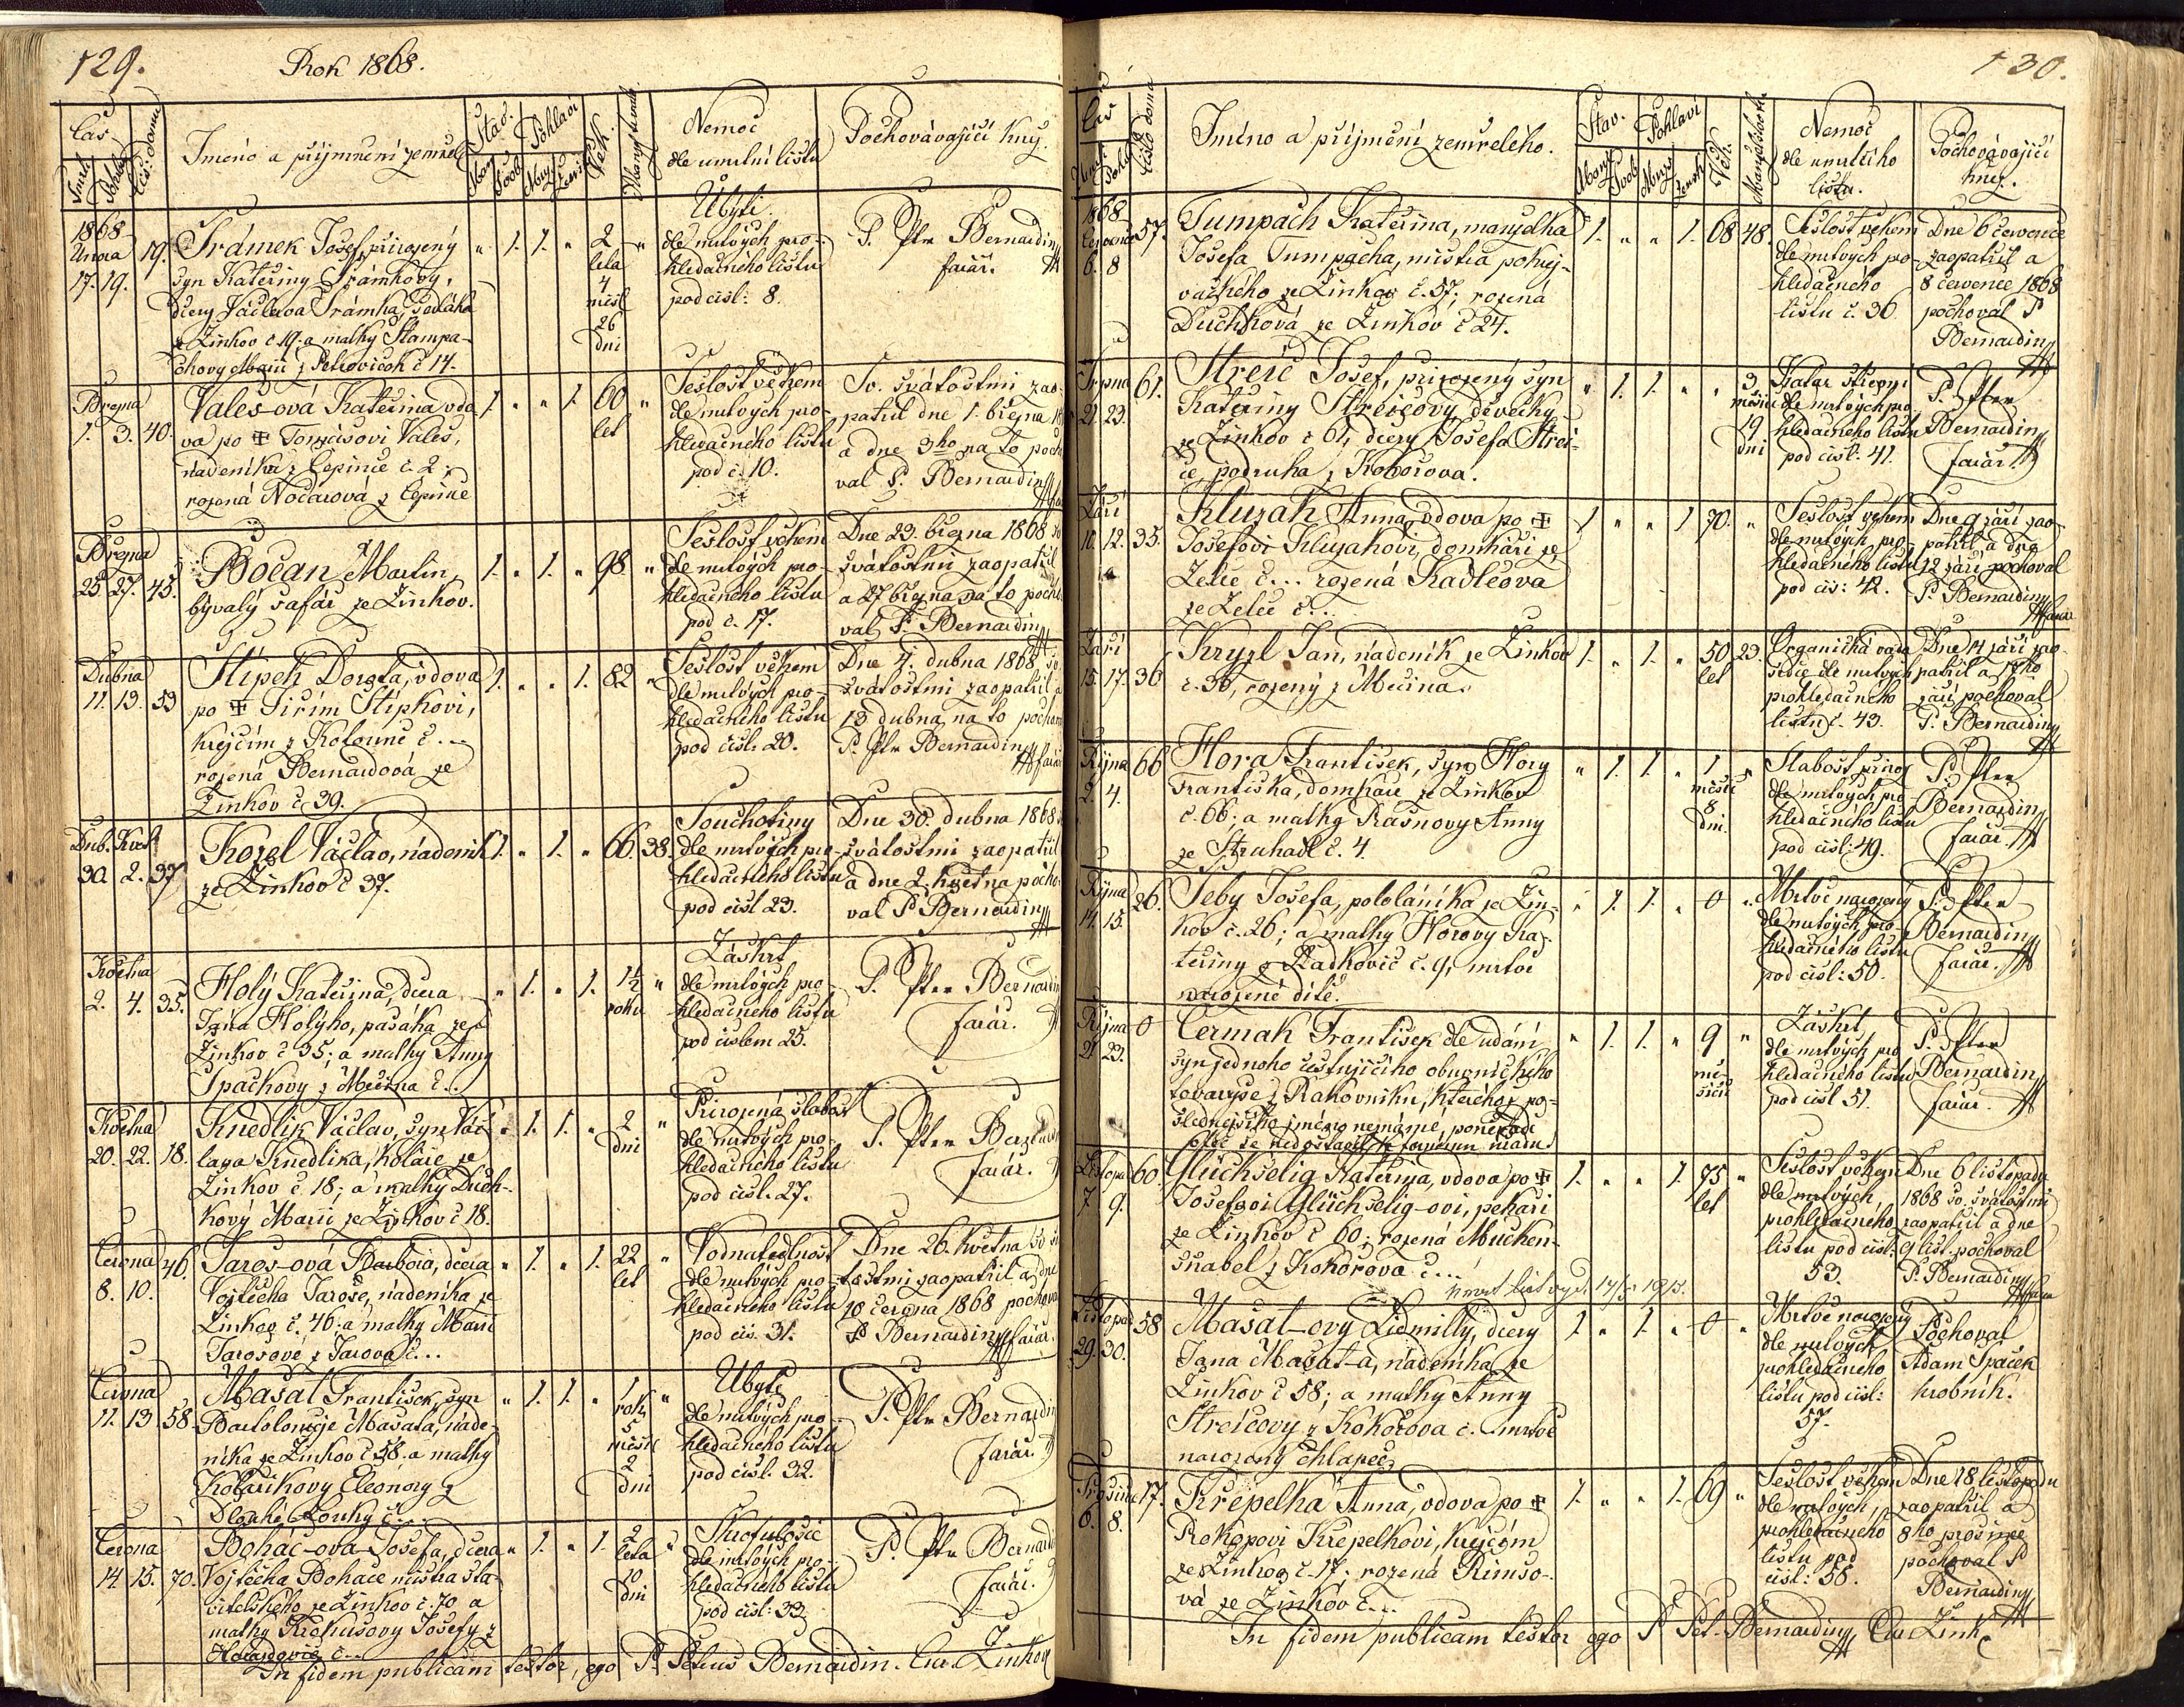 129.
Rok 1868.
Čas
Čís: domu
Jméno a příjmení zemřel
Stav.
Pohlaví
Věk.
Nemoc
dle úmrtní listu
Pochovávajíčí kněz.
1868
Února 19.
17. 19.
Šrámek Josef, přirozený
syn Kateřiny Šrámkovy,
dcery Václava Šrámka, sedláka
ze Žinkov č 19; a matky Štampa-
chovy Marii z Petrovičok č 14.
" 1. 1. "
2
léta
4
měsí
26
dni
Úbytí
dle mrtvých pro-
hledačného listu
pod čísl: 8.
P. Ptr Bernardin
farář.
Března
1. 3. 40.
Valeš-ová Kateřina vdo
va po ✠ Tomášovi Valeš,
nadeníka z Čepinče č. 2;
rozená Nocarová z Čepinče
1. " " 1.
60
let
Sešlost věkem
dle mrtvých pro-
hledačného listu
pod č. 10.
Sv. svátostmi zao-
patril dne 1. března
a dne 3ho na to pocho
val P. Bernardin
Března
25 27. 45.
Bočan Martin,
bývalý šafář ze Žinkov.
1. " 1. " 98. "
Sešlost věkem
dle mrtvých pro-
hledačného listu
pod č. 17.
Dne 23. března 1868
svátostmi zaopatřil
a 27 března na to pocho
val P. Bernardin
Dubna
11. 13. 53
Štípek Dorota, vdova
po ✠ Jiřím Štípkovi,
krejčím z Kolouně č ...
rozená Bernardová ze
Žinkov č 39.
1. " " 1. 82 "
Sešlost věkem
dle mrtvých pro-
hledačného listu
pod čísl. 20.
Dne 4. dubna 1868
svátostmi zaopatřil a
13 dubna na to pocho
P. Ptr Bernardin
farář
Dub. Květ
30. 2. 37
Kozel Václav, nádeník
ze Žinkov č 37.
1. " 1. " 66. 38.
Souchotiny
dle mrtvých pro-
hledačného listu
pod čísl 23.
Dne 30. dubna 1868
svátostmi zaopatřil
a dne 2. května pocho-
val P. Bernardin
Května
2. 4. 35.
Holý Kateřina, dcera
Jana Holýho, pasáka ze
Žinkov č 35; a matky Anny
Špačkovy z Mečína č..
" 1. " 1.
1½
roku
Záškrt
dle mrtvých pro-
hledačného listu
pod číslem 25.
P. Ptr Bernardin
farář.
Května
20. 22. 18.
Knedlík Václav, syn Vác-
lava Knedlíka, koláře ze
Žinkov č 18; a matky Duch-
kový Marii ze Žinkov č 18.
" 1. 1. "
2
dni
Přirozená slabost
dle mrtvých pro-
hledačného listu
pod čísl. 27.
P. Ptr Bernardin
farář.
Června 46.
8. 10.
Jaroš-ová Barbora, dcera
Vojtěcha Jaroše, nádeníka ze
Žinkov č. 46; a matky Marii
Jarošové z Jarova č...
" 1. " 1.
22
let
Vodnatedlnost
dle mrtvých pro-
hledačného listu
pod čís. 31.
Dne 26. května
tostmi zaopatřil a dne
10 června 1868 pochova
P Bernardin farář.
Června
11. 13. 58.
Mašat František, syn
Bartoloměje Mašata, náde-
níka ze Žinkov č 58. a matky
Kolaříkovy Eleonory z
Dlouhé Louky č...
" 1. 1. "
1
rok
5
měsíc
2
dni
Úbytě
dle mrtvých pro-
hledačného listu
pod čísl: 32.
P. Ptr Bernardin
farář.
Června
14 15. 70.
Boháč-ova Josefa, dcera
Vojtěcha Boháče místra sta-
vitelského ze Žinkov č. 70 a
matky Krohusovy Josefy z
Horažďovic č...
" 1. " 1.
2
léta
10
dni
Skrofulosie
dle mrtvých pro-
hledačného listu
pod čísl: 33.
P. Ptr Bernardin
farář.
In fidem publicam testor, ego P. Petrus Bernardin. Cur. Žinkov
130.
Čas
Číslo domu
Jméno a příjmení zemřelého.
Stav.
Pohlaví
Věk.
Manželstva
Nemoc
dle úmrtího
listu.
Pochovávajíčí
kněz.
1868
Července 57.
6. 8
Tumpach Kateřina, manželka
Josefa Tumpacha, místra pokrej-
vačkého ze Žinkov č. 57; rozená
Duchková ze Žinkov č 24.
1. " " 1. 68 48.
Sešlost věkem
dle mrtvých po-
hledačneho
listu č. 36
Dne 6 července
zaopatřil a
8 července 1868
pochoval P
Bernardin
Srpna 61.
21. 23.
Streic Josef, přirozený syn
Kateřiny Streicovy děvečky
ze Žinkov č 61, dcery Josefa Strei-
če, podruha z Kokořova.
" 1. 1. "
3
měsíce
19
dni
Katar střevní
dle mrtvých pro-
hledačného listu
pod čísl: 41.
P. Ptr
Bernardin
farář
Září
10. 12. 35.
Kluzak Anna, vdova po ✠
Josefovi Kluzakovi, domkáři ze
Zelče č... rozená Kadlčova
ze Zelče č...
1 " " 1 70. "
Sešlost věkem
dle mrtvých pro-
hledačného listu
pod čís: 42.
Dne 9 září zao-
patřil a dne
12 září pochoval
P. Bernardin
farář
Září
15. 17. 36
Kryzl Jan, nádeník ze Žinkov
č. 36, rozený z Mečína.
1. " 1. "
50
let
23.
Organická vada
srdce dle mrtvých
prohledačného
listu č. 43.
Dne 14 září zao-
patřil a 17ho
září pochoval
P. Bernardin
Října 66
2. 4.
Hora František, syn Hory
Františka, domkáře ze Žinkov
č. 66; a matky Rašnovy Anny
ze Struhadl č. 4.
" 1. 1. "
1
měsíc
8
dni.
Slabost přiroz
dle mrtvých pro
hledačného listu
pod čísl: 49.
P. Ptr
Bernardin
farář.
Října 26.
14 15.
Šeby Josefa, pololáníka ze Žin-
kov č. 26; a matky Horovy Ka-
teřiny z Radkovic č. 9; mrtvě
narozené dítě.
" 1. 1. " 0 "
Mrtvě narozený
dle mrtvých pro-
hledačného listu
pod čísl: 50.
P. Ptr
Bernardin
farář.
Října 0
21 23.
Čermak František dle udání
syn jednoho cestujícího obuvnického
tovaryše z Rakovníku, kterého po-
slednějšího jméno neznámé, poněvadž
" 1. 1. "
9
mě-
síců
Záškrt
dle mrtvých pro
hledačného listu
pod čísl 51.
P. Ptr
Bernardin
farář.
Listopa 60.
7 9.
Glückselig Kateřina, vdova po ✠
Josefovi Glückselig-ovi, pekaři
ze Žinkov č 60; rozená Mücken-
šnabel z Kokořova č...
1. " " 1.
75
let
Sešlost věkem
dle mrtvých
prohledačného
listu pod čísl:
53.
Dne 6 listopadu
1868 sv. svátostmi
zaopatřil a dne
9 list. pochoval
P. Bernardin
Listopad 58
29. 30.
Mašat-ovy Lidmilly, dcery
Jana Mašat-a, nádeníka ze
Žinkov č 58; a matky Anny
Streicovy z Kokořova č. mrtvě
narozený chlapec
1. " 1. " 0 "
Mrtvě narozený
dle mrtvých
prohledačného
listu pod čísl:
57.
Pochoval
Adam Špaček
hrobník.
Prosince 17.
6. 8.
Křepelka Anna, vdova po ✠
Prokopovi Křepelkovi, krejčím
ze Žinkov č. 17; rozená Rimso-
vá ze Žinkov č...
1. " " 1. 69 "
Sešlost věkem
dle mrtvých
prohledačného
listu pod
čísl: 58.
Dne 28 listopadu
zaopatřil a
8ho prosince
pochoval P
Bernardin
In fidem publicam testor ego P Pet. Bernardin Cur Žink.